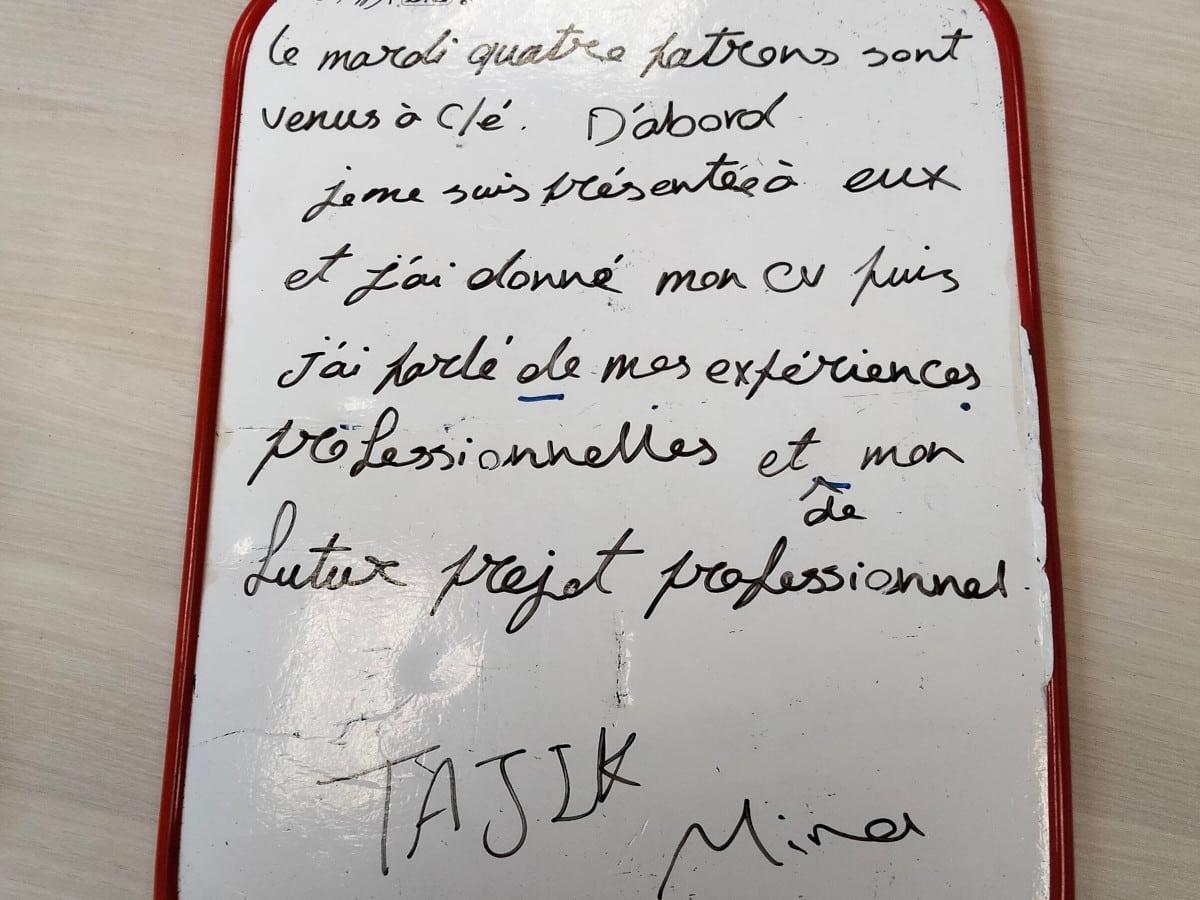 le mardi quatre patrons sont
venus à Clé. D'abord
je me suis présentée à eux
et j'ai donné mon CV puis
j'ai parlé de mes expériences
professionnelles et mon
de
futur projet professionnel.
TAJIK
Mina